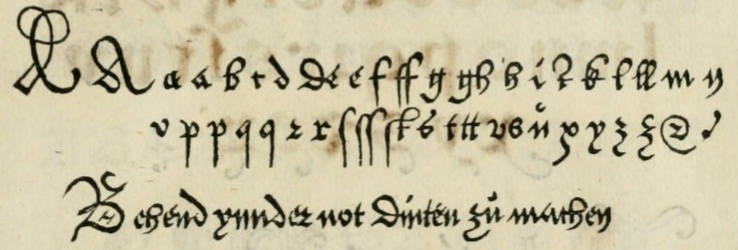 A A a a b c d de e f ff g gh h i j k l ll m n
o p p q q r r ſ ſſ ſt s t tt v s ů x y z z
Behend ynnder not Dinten zů machen